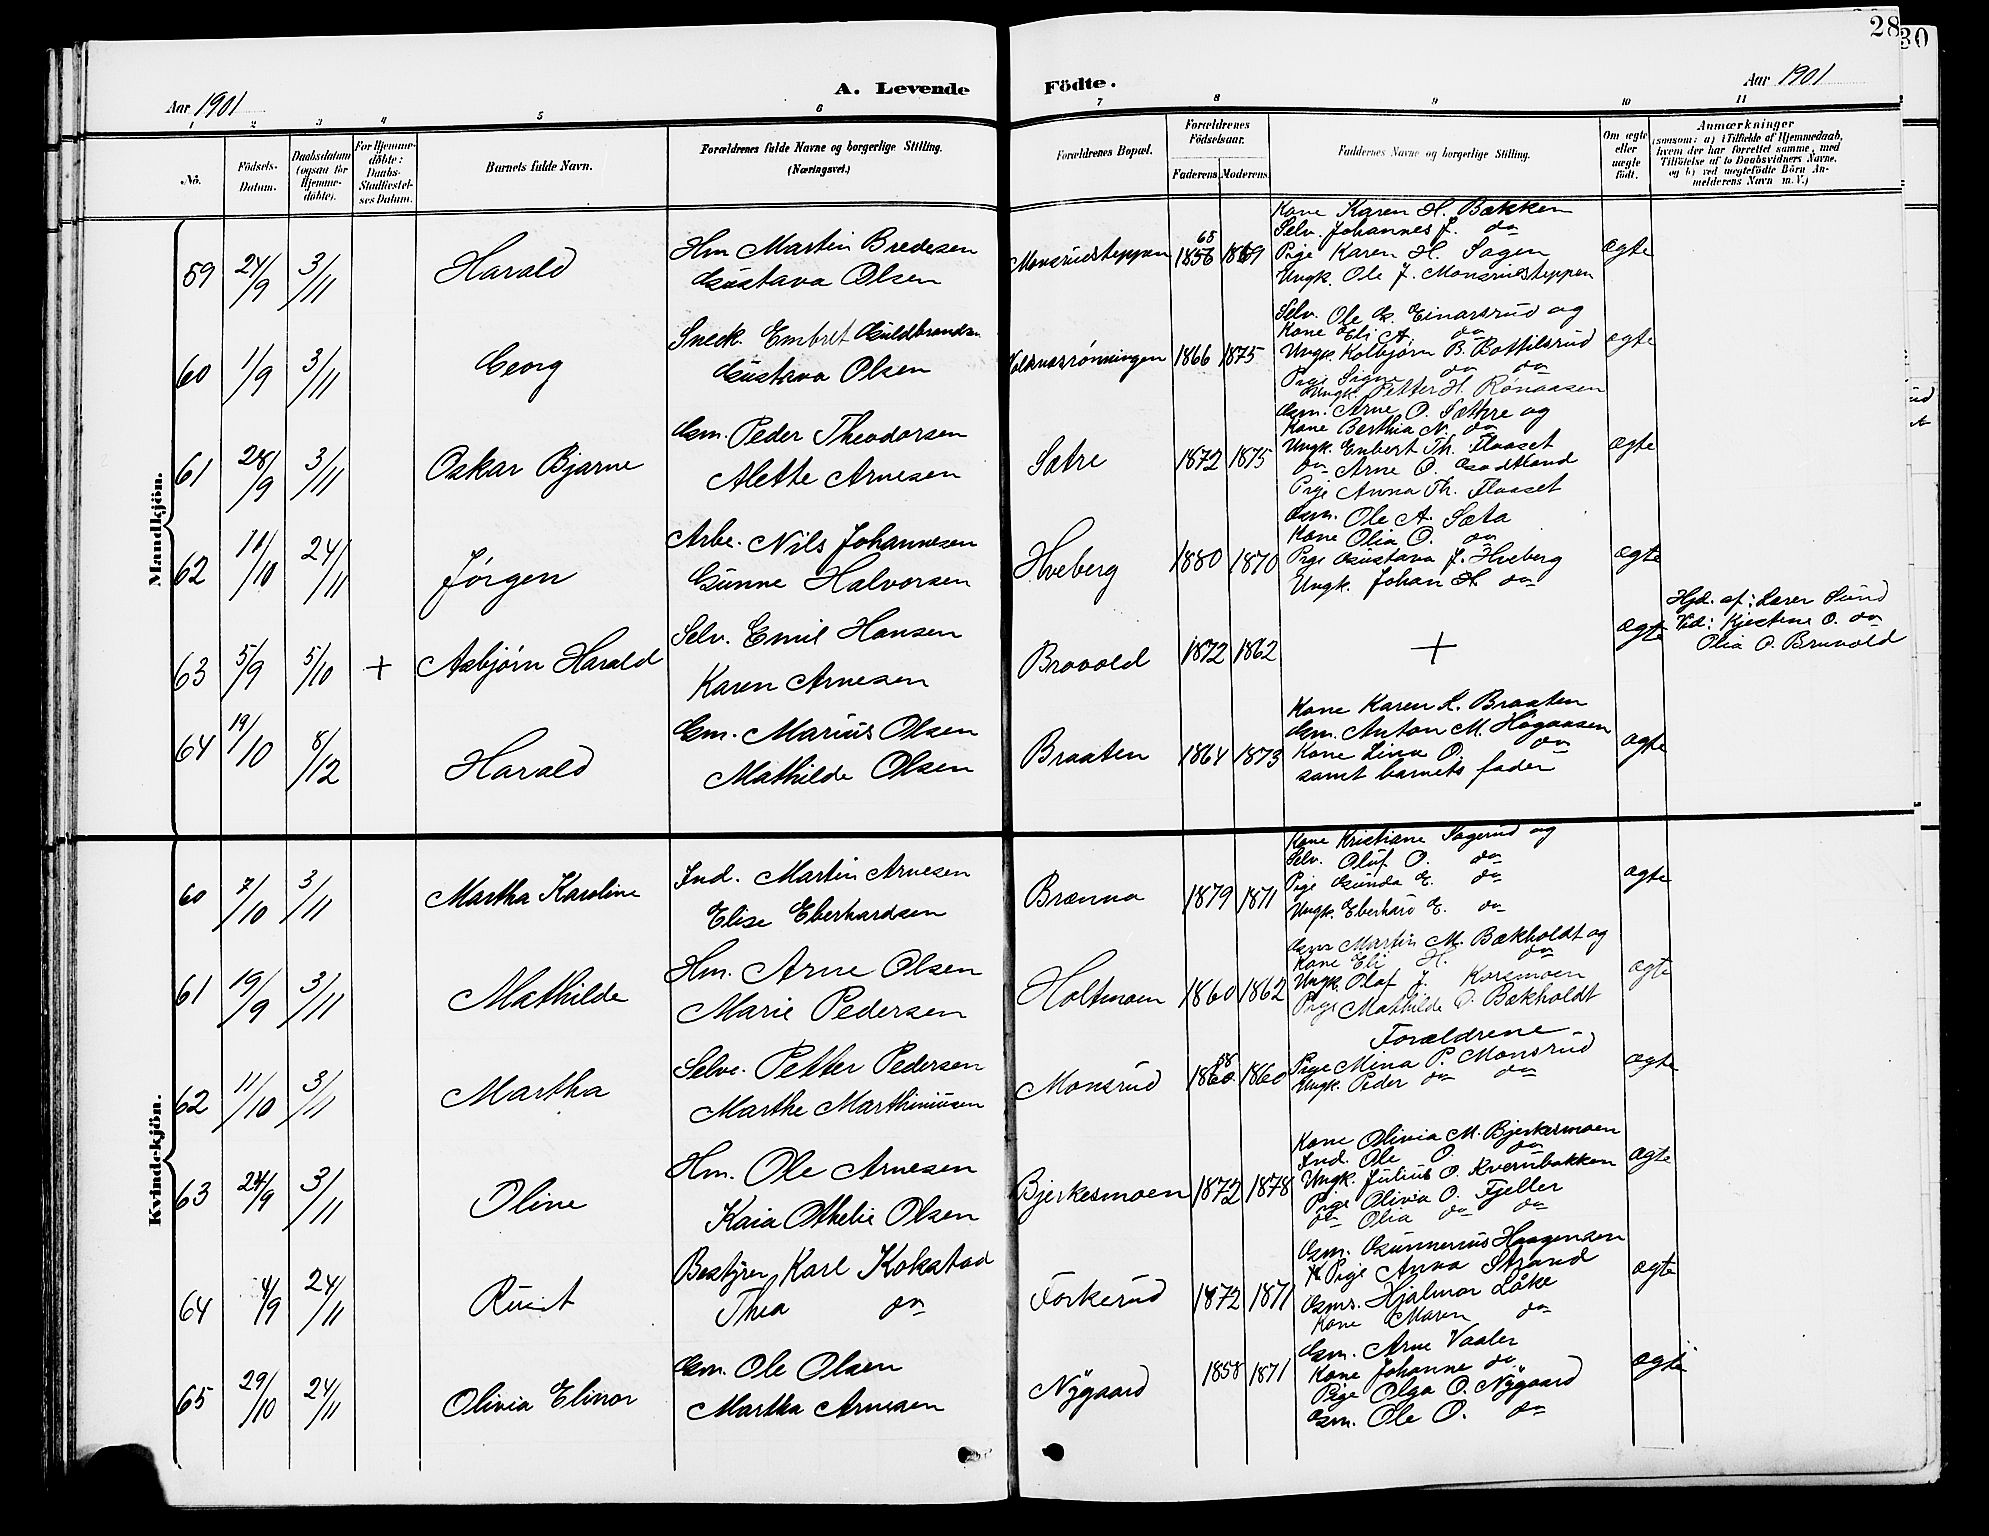 28
30
Aar 1901
A. Levende
Födte.
Aar 1901
1 2 3 4 5 6 7 8 9 10 11
No.
Födsels-Datum.
Daabsdatum (ogsaa for Hjemme-döbte).
For Hjemme-döbte: Daabs-Stadfæstel-ses Datum.
Barnets fulde Navn.
Forældrenes fulde Navne og borgerlige Stilling. (Næringsvei.)
Forældrenes Bopæl.
Forældrenes Födselsaar.
Faderens. Moderens.
Faddernes Navne og borgerlige Stilling.
Om ægte eller uægte födt.
Anmærkninger
(saasom: a) i Tilfælde af Hjemmedaab, hvem der har forrettet samme, med Tilföielse af to Daabsvidners Navne, og b) ved uegtefödte Börn An-melderens Navn m. V.)
Mandkjön.
59 24/9 3/11 Harald
Hm Martin Bredesen
Gustava Olsen
Monsrudsteppen 1856 68 1869
Kone Karen H. Bakken
Selv. Johannes J. do
Pige Karen H. Sagen
Ungk. Ole J. Monsrudsteppen
ægte
60 1/9 3/11 Georg
Sneck. Embret Guldbrandsn
Gustava Olsen
1866 1875
Selv. Ole G. Einarsrud og
Kone Eli A. do
Ungk. Kolbjørn B. Bottilsrud
Pige Signe do do
Ungk. Petter H. Rønaasen
ægte
61 28/9 3/11 Oskar Bjarne
Gm. Peder Theodorsen
Alette Arnesen
Sætre 1872 1875
Gm. Arne O. Sæthre og
Kone Berthia N. do
Ungk. Enbert Th. Flaaset
do Arne O.
Pige Anna Th. Flaaset
ægte
62 11/10 24/11 Jørgen
Arbe. Nils Johannesen
Gunne Halvorsen
Hveberg 1880 1870
Gm. Ole A. Sæta
Kone Olia O. do
Pige Gustava J. Hveberg
Ungk. Johan H. do
ægte
63 5/9 5/10 + Asbjørn Harald
Selv. Emil Hansen
Karen Arnesen
Brovold 1872 1862
+
ægte
Hjd. af: Lærer Sund
Vid: Kjestine O. do
Olia O. Bruvold
64 19/10 8/12 Harald
Gm. Marius Olsen
Mathilde Olsen
Braaten 1864 1873
Kone Karen L. Braaten
Gm. Anton M. Høgaasen
Kone Lina O. do
samt barnets fader
ægte
Kvindekjön.
60 7/10 3/11 Martha Karoline
Ind. Martin Arnesen
Elise Eberhardsen
Brænna 1879 1871
Kone Kristiane Sagerud og
Selv. Oluf O. do
Pige Gunda E. do
Ungk. Eberhard E. do
ægte
61 19/9 3/11 Mathilde
Hm. Arne Olsen
Marie Pedersen
Holtmoen 1860 1862
Gm Martin M. Bækholdt og
Kone Eli H. do
Ungk. Olaf J. Korsmoen
Pige Mathilde O. Bækholdt
ægte
62 11/10 3/11 Martha
Selve. Petter Pedersen
Marthe Marthinusen
Monsrud 1860 58 1860
Forældrene
Pige Mina P. Monsrud
Ungk. Peder do do
ægte
63 24/9 3/11 Oline
Hm. Ole Arnesen
Kaia Othelie Olsen
Bjerkesmoen 1872 1878
Kone Olivia M. Bjerkesmoen
Ind. Ole O. do
Ungk. Julius O. Kvernbakken
Pige Olivia O. Fjeller
do Olia do do
ægte
64 4/9 24/11
Bestyrer Karl Kokstad
Thea do
Forkerud 1872 1871
Gm. Gunnerius Haagensen
Pige Anna Strand
Gm. Hjalmar Låke
Kone Maren do
ægte
65 29/10 24/11 Olivia Elinor
Gm. Ole Olsen
Martha Arnesen
Nygaard 1858 1871
Gm. Arne Vaaler
Kone Johanne do
Pige Olga O. Nygaard
Gm. Ole O. do
ægte